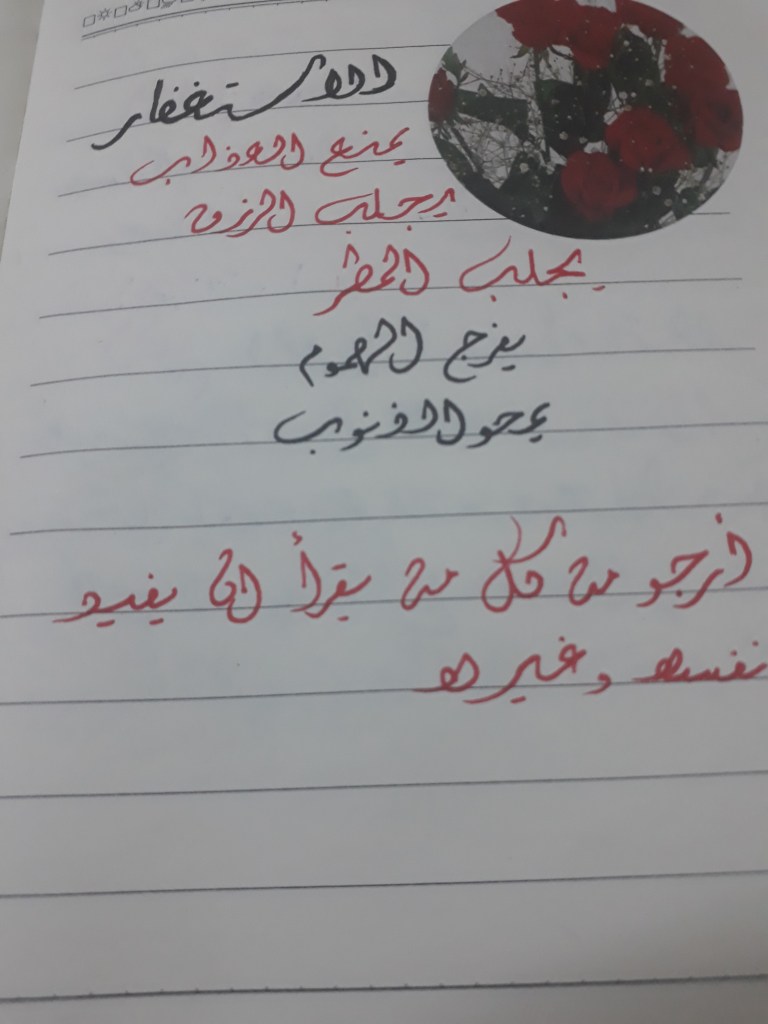 الاستغفار
يمنع العذاب
يجلب الرزق
يجلب المطر
يفرج الهموم
يمحو الذنوب
أرجو من كل من يقرأ ان يفيد
نفسه وغيره